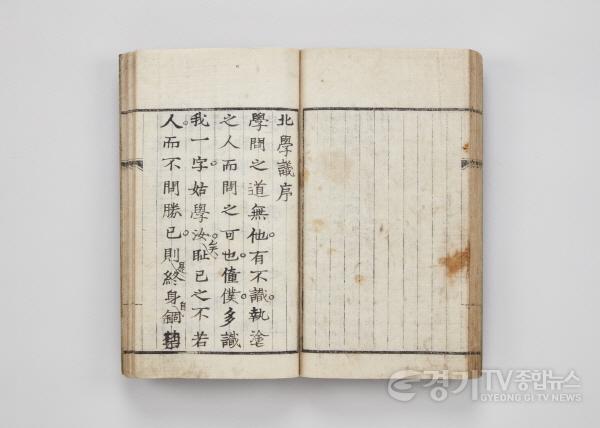 北學議序
學問之道無他有不識執塗
之人而問之可也僮僕多識
我一字姑學汝矣恥己之不若
人而不問勝己則是終身自錮
경기TV종합뉴스
GYEONG GI TV NEWS